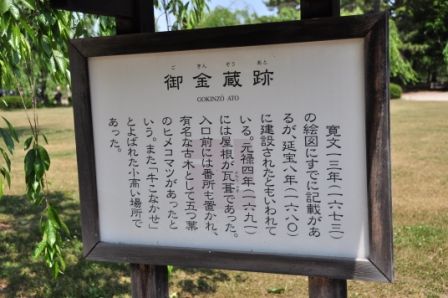 ご きん ぞう あと
御金蔵跡
GOKINZŌ ATO
寛文一三年(一六七三)
の絵図にすでに記載があ
るが、延宝八年(一六八〇)
に建設されたともいわれて
いる。元禄四年(一六九一)
には屋根が瓦葺であった。
入口前には番所も置かれ、
有名な古木として五つ葉
のヒメコマツがあったと
いう。また「牛こなかせ」
とよばれた小高い場所で
あった。